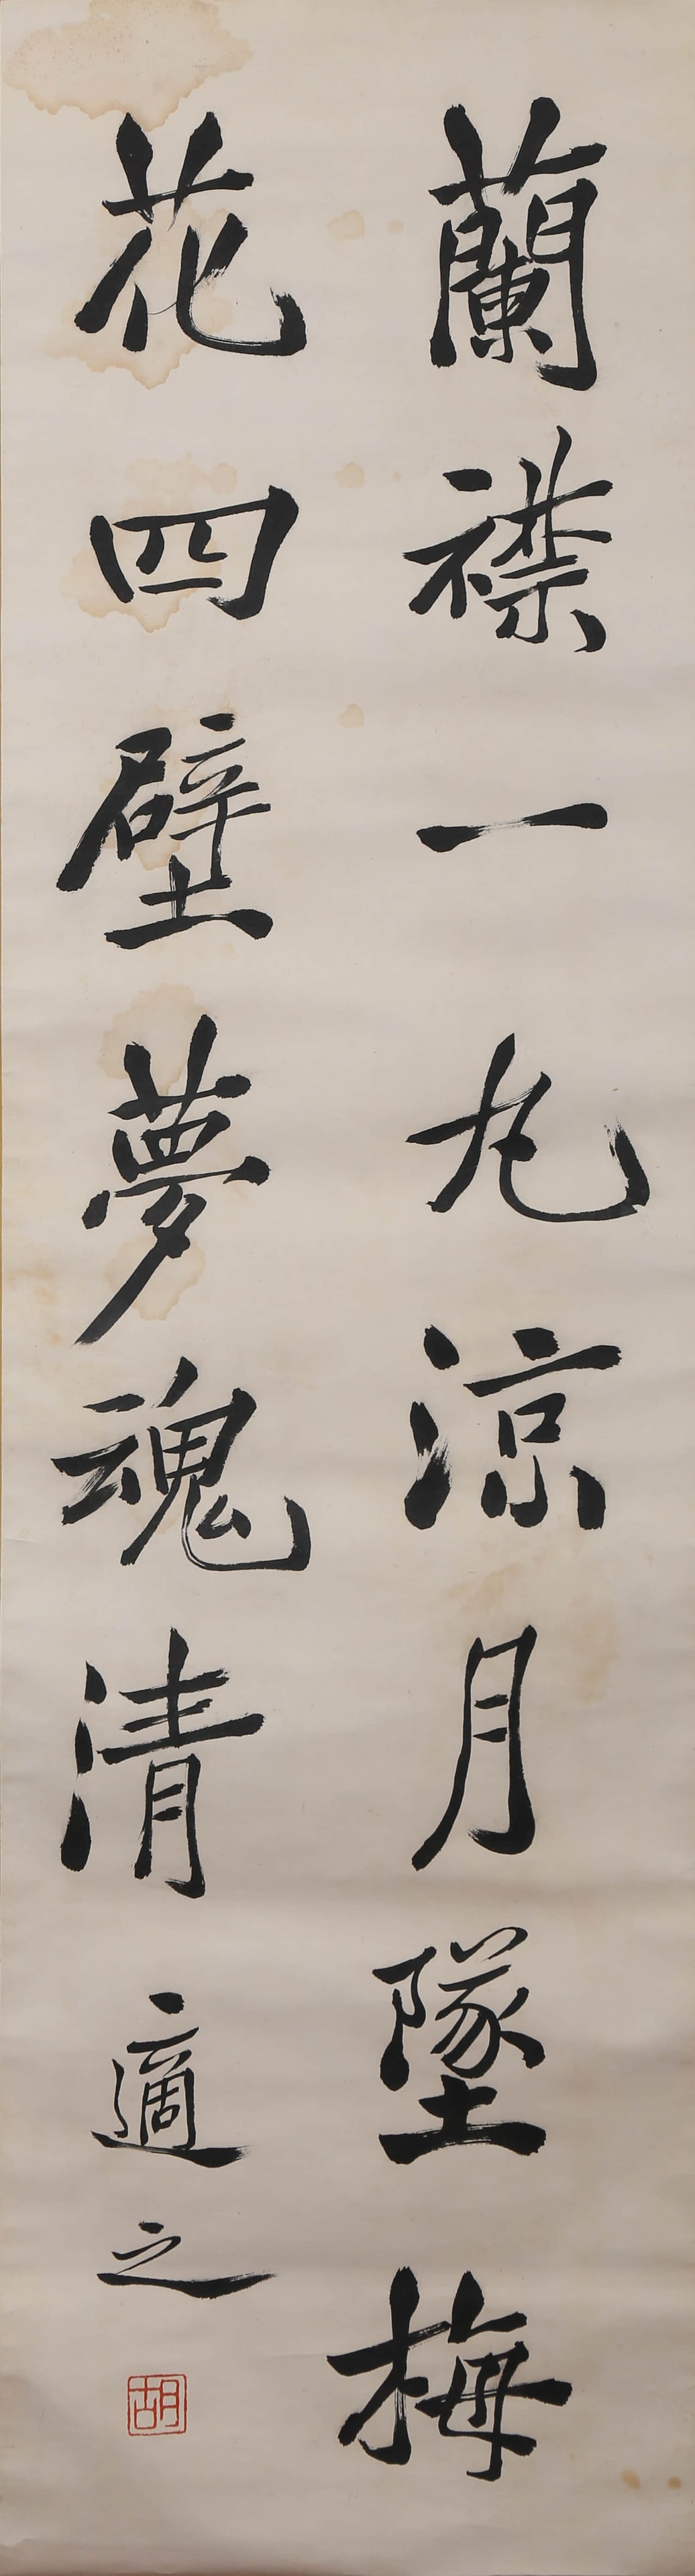 蘭襟一丸涼月墜梅
花四壁夢魂清 適之
胡